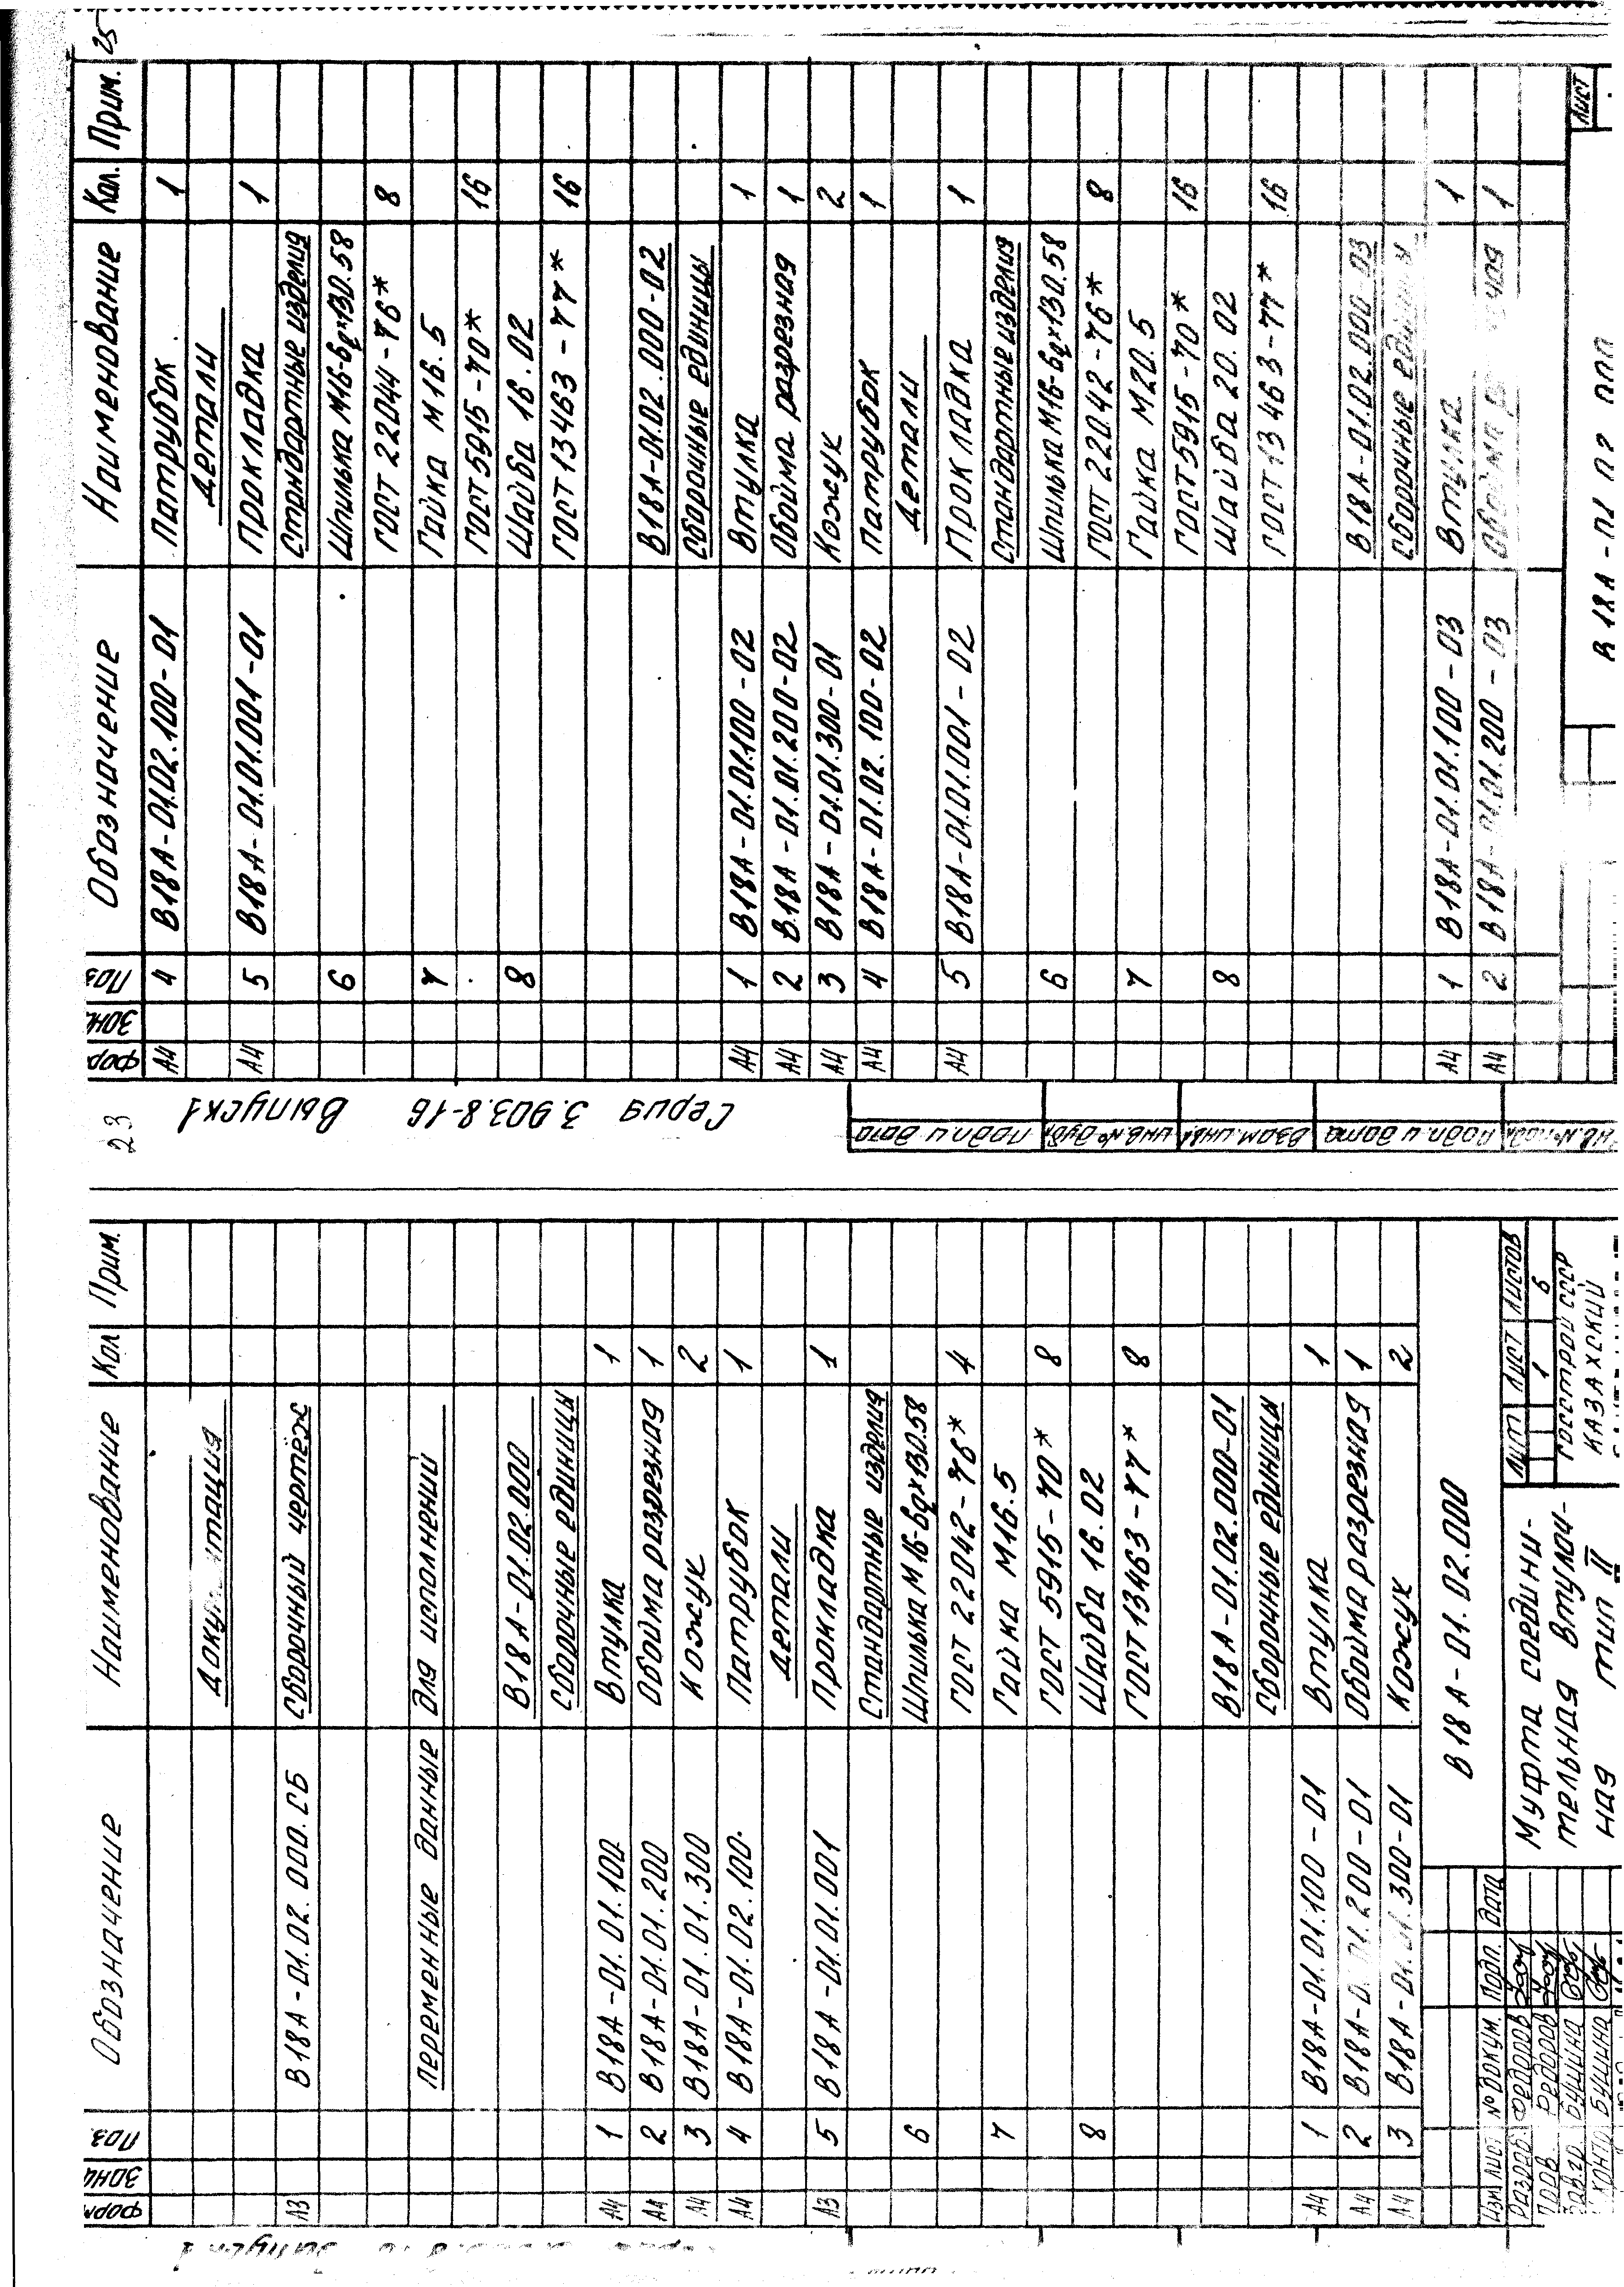 Форм. Зона Поз. Обозначение Наименование Кол Прим.
сборочный чертёж
А3 В18А-01.02.000.СБ
Переменные данные для исполнений
В18А-01.02.000
Сборочные единицы
А4 1 В18А-01.01.100 Втулка 1
А4 2 В18А-01.01.200 Обойма разрезная 1
А4 3 В18А-01.01.300 Кожух 2
А4 4 В18А-01.02.100. Патрубок 1
Детали
А3 5 В18А-01.01.001 Прокладка 1
Стандартные изделия
6 Шпилька М16-6g×130.58
ГОСТ 22042-76* 4
7 Гайка М16.5
ГОСТ 5915-70* 8
8 Шайба 16.02
ГОСТ 13463-77* 8
В18А-01.02.000-01
Сборочные единицы
А4 1 В18А-01.01.100-01 Втулка 1
А4 2 В18А-01.01.200-01 Обойма разрезная 1
А4 3 В18А-01.01.300-01 Кожух 2
В18А-01.02.000
Изм Лист № докум. Подп. Дата
Разраб Федоров
Пров. Федоров
Зав.гр. Бушина
Н контр Бушина
Муфта соедини-
тельная втулоч-
ная тип II
Лит Лист Листов
1 6
Госстрой СССР
КАЗАХСКИЙ
23
Серия 3.903.8-16 Выпуск 1
25
Форм Зона Поз. Обозначение Наименование Кол. Прим.
А4 4 В18А-01.02.100-01 Патрубок 1
Детали
А4 5 В18А-01.01.001-01 Прокладка 1
Стандартные изделия
6 Шпилька М16-6g×130.58
ГОСТ 22044-76* 8
7 Гайка М16.5
ГОСТ 5915-70* 16
8 Шайба 16.02
ГОСТ 13463-77* 16
В18А-01.02.000-02
Сборочные единицы
А4 1 В18А-01.01.100-02 Втулка 1
А4 2 В18А-01.01.200-02 Обойма разрезная 1
А4 3 В18А-01.01.300-01 Кожух 2
А4 4 В18А-01.02.100-02 Патрубок 1
Детали
А4 5 В18А-01.01.001-02 Прокладка 1
Стандартные изделия
6 Шпилька М16-6g×130.58
ГОСТ 22042-76* 8
7 Гайка М20.5
ГОСТ 5915-70* 16
8 Шайба 20.02
ГОСТ 13463-77* 16
В18А-01.02.000-03
Сборочные единицы
А4 1 В18А-01.01.100-03 Втулка 1
А4 2 В18А-01.01.200-03 Обойма 1
Подп. и дата
Инв.№ дубл
Взам.инв.
Подп. и дата
Лист